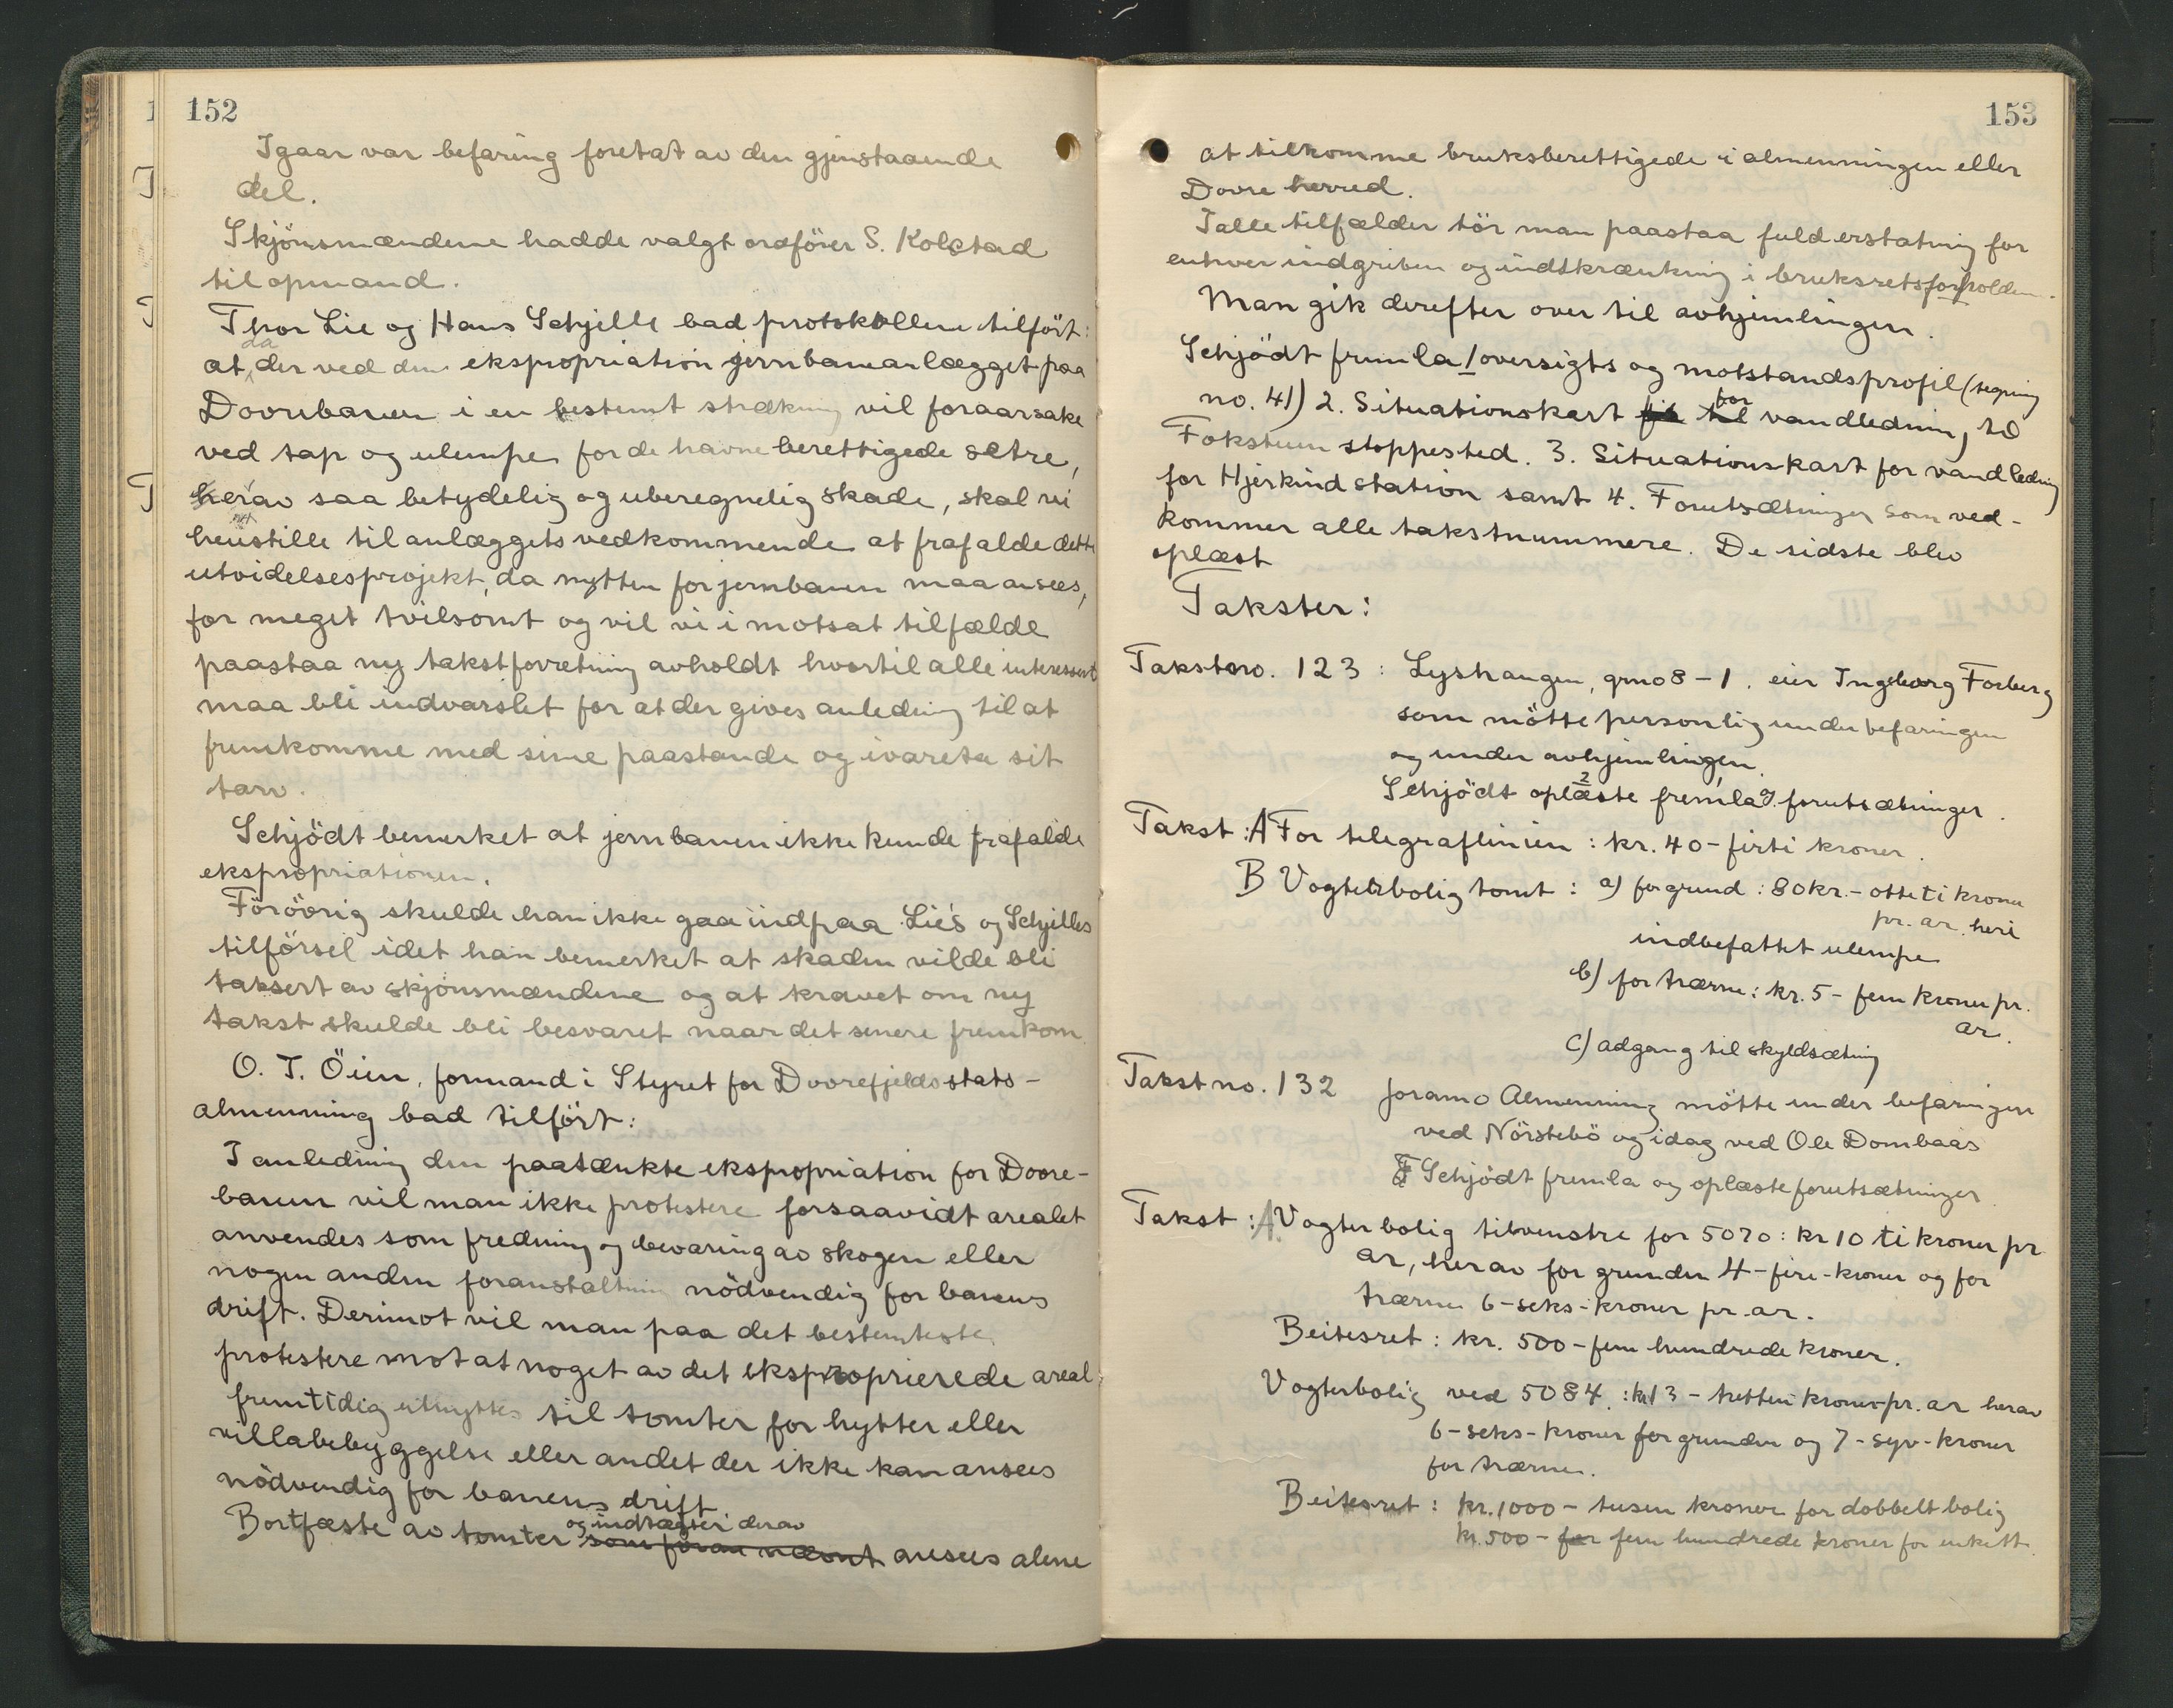 152
Igaar var befaring foretat av den gjenstaaende
del.
Skjönsmændene hadde valgt ordförer S. Kolstad
til opmand.
Thor Lie og Hans Schjelle bad protokollen tilfört:
at da der ved den ekspropriation jernbaneanlægget paa
Dovrebanen i en bestemt strækning vil foraarsake
ved tap og ulempe for de havneberettigede sætre,
herav saa betydelig og uberegnelig skade, skal vi
henstille til anlæggets vedkommende at frafalde dette
utvidelsesprojekt, da nytten for jernbanen maa ansees,
for meget tvilsomt og vil vi i motsat tilfælde
paastaa ny takstforretning avholdt hvortil alle interessert
maa bli indvarslet for at der gives anledning til at
fremkomme med sine paastande og ivareta sit
tarv.
Schjödt bemerket at jernbanen ikke kunde frafalde
ekspropriationen.
Förövrig skulde han ikke gaa ind paa Lie's og Schjelles
tilförsel idet han bemerket at skaden vilde bli
taksert av skjönsmændene og at kravet om ny
takst skulde bli besvaret naar det senere fremkom
O. T. Öien, formand i Styret for Dovrefjelds stats-
almenning bad tilfört:
I anledning den paatænkte ekspropriation for Dovre-
banen vil man ikke protestere forsaavidt arealet
anvendes som fredning og bevaring av skogen eller
nogen anden foranstaltning nödvendig for banens
drift. Derimot vil man paa det bestemteste
protestere mot at noget av det eksproprierede areal
fremtidig utnyttes til tomter for hytter eller
villabebyggelse eller andet der ikke kan ansees
nödvendig for banens drift
Bortfæste av tomter og indtægter derav som foran nævnt ansees alene
153
at tilkomme bruksberettigede i almenningen eller
Dovre herred.
I alle tilfælder tör man paastaa fuld erstatning for
enhver indgriben og indskrænkning i bruksretsforholden.
Man gik derefter over til avhjemlingen.
Schjödt fremla 1 oversigts og motstandsprofil (tegning
no. 41) 2. Situationskart for vandledning td
Fokstuen stoppested. 3. Situationskart for vandledning
for Hjerkind station samt 4. Forutsætninger som ved-
kommer alle takstnummere. De sidste blev
oplæst
Takster:
Takstno. 123: Lyshaugen, grno 8-1. eier Ingeborg Forberg
som mötte personlig under befaringen
og under avhjemlingen.
Schjödt oplæste 2 fremla 1 forutsætninger.
Takst: A For telegraflinien: kr. 40 - firti kroner.
B Vogterbolig tomt: a) for grund: 80 kr. - otteti kroner
pr. ar. heri
indbefattet ulempe
b) for trærne: kr. 5 - fem kroner pr.
ar.
c) adgang til skyldsætning
Takst no. 132 Joramo Almenning mötte under befaringen
ved Nörstebö og idag ved Ole Dombaas
Schjödt fremla og oplæste forutsætninger
Takst: A. Vogterbolig tilvenstre for 5070: kr 10 ti kroner pr
ar, herav for grunden 4 - fire - kroner og for
trærne 6 - seks - kroner pr. ar.
Beitesret: kr. 500 - fem hundrede kroner.
Vogterbolig ved 5084.: kr 13 - tretten kroner pr. ar herav
6 - seks - kroner for grunden og 7 - syv - kroner
for trærne.
Beitesret: kr. 1000 - tusen kroner for dobbelt bolig
kr. 500 - for fem hundrede kroner for enkelt.